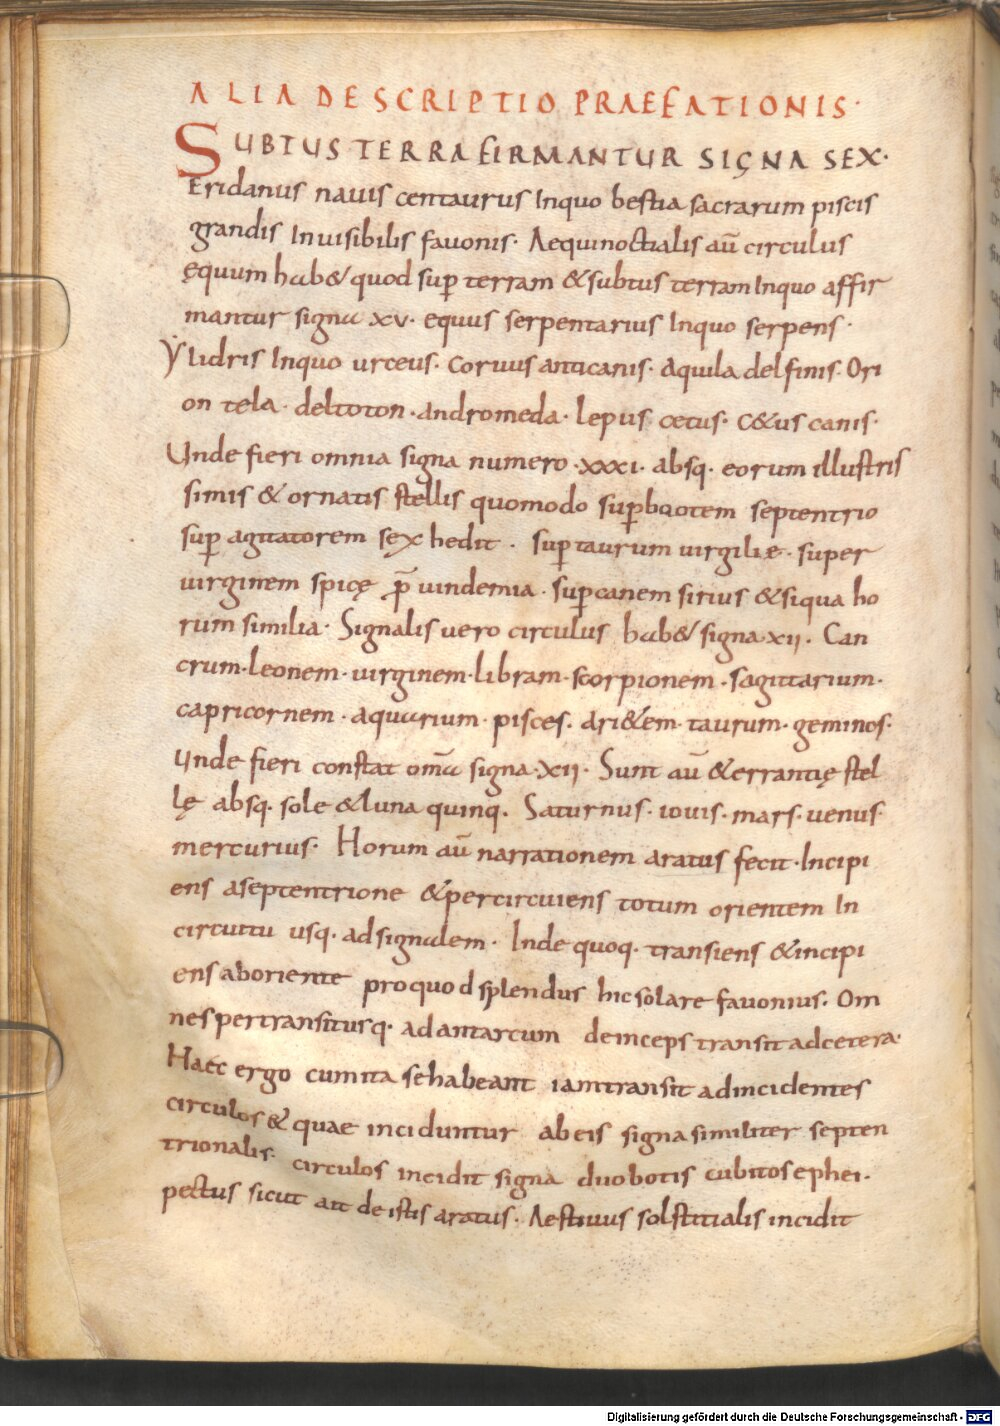 ALIA DESCRIPTIO PRAEFATIONIS·
SUBTUS TERRA FIRMANTUR SIGNA SEX·
Eridanus nauis centaurus Inquo bestia sacrarum piscis
grandis Inuisibilis fauonis· Aequinoctialis au̅ circulus
ęquum hab& quod sup̲ terram &subtus terram Inquo affir
mantur signa xv· equus serpentarius Inquo serpens·
Ylidris Inquo urceus· coruus anticanis· aquila delfinis· Ori
on tela· deltoton· andromeda· lepus cetus· c&us canis·
Unde fieri omnia signa numero ·xxxi· absq· eorum illustris
simis & ornatis stellis quomodo sup̲ bootem septentrio
sup̲ agitatorem sex hedit· sup̲ taurum uirgilię· super
uirginem spicę p̅ uindemia· sup̲ canem sirius &siqua ho
rum similia· Signalis uero circulus hab& signa xii· Can
crum·leonem·uirginem·libram·scorpionem·sagittarium·
capricornem·aquarium·pisces·ari&em·taurum·geminos·
Unde fieri constat om̅a signa·xii· Sunt au̅ &errantię stel
lę absq· sole &luna quinq· Saturnus·iouis·mars·uenus·
mercurius· Horum au̅ narrationem aratus fecit·Incipi
ens aseptentrione &percircuiens totum orientem In
circuitu usq· adsignalem· Inde quoq· transiens &incipi
ens aboriente proquod splendus hicsolare fauonius· Om
nes pertransitusq· ad antarcum deinceps transit adcetera·
Haec ergo cumita sehabeant iamtransit adincidentes
circulos & quae inciduntur abeis signa similiter septen
trionalis· circulos incidit signa duobotis cubitos ephei·
pectus sicut ait deistis aratus· Aestiuus solstitialis incidit
Digitalisierung gefördert durch die Deutsche Forschungsgemeinschaft - DFG